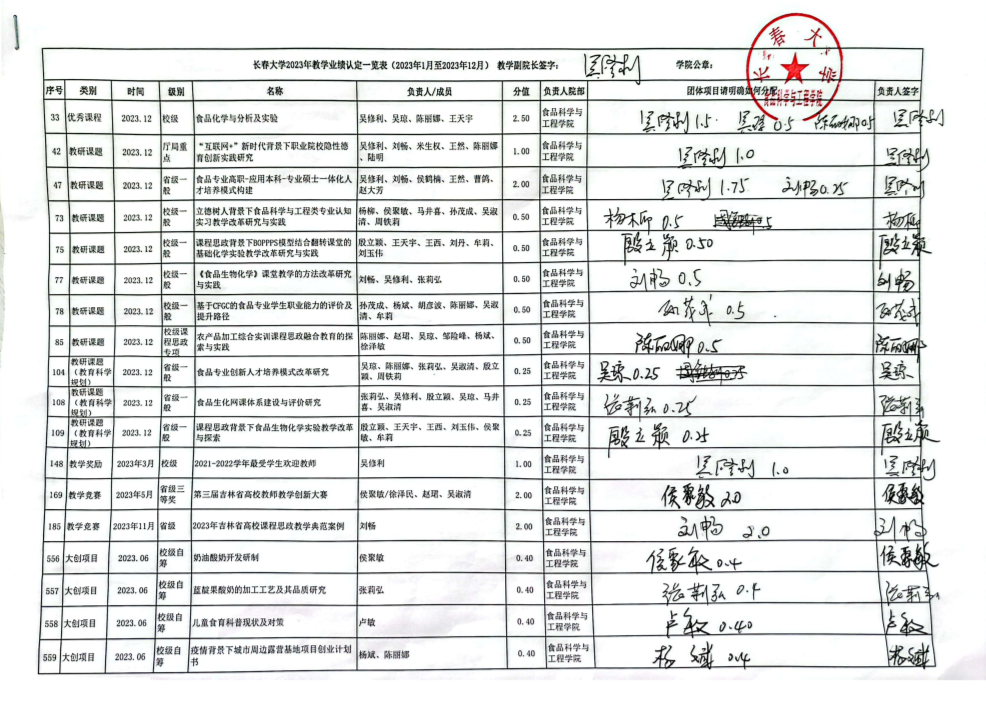 长春大学2023年教学业绩认定一览表（2023年1月至2023年12月） 教学副院长签字： 吴修利 学院公章：
长春大学
食品科学与工程学院
序号 类别 时间 级别 名称 负责人/成员 分值 负责人院部 团体项目请明确如何分配 负责人签字
33 优秀课程 2023.12 校级 食品化学与分析及实验 吴修利、吴琼、陈丽娜、王天宇 2.50 食品科学与工程学院 吴修利 1.5 吴琼 0.5 陈丽娜 0.5 吴修利
42 教研课题 2023.12 厅局重点 “互联网+”新时代背景下职业院校隐性德育创新实践研究 吴修利、刘畅、米生权、王然、陈丽娜、陆明 1.00 食品科学与工程学院 吴修利 1.0 吴修利
47 教研课题 2023.12 省级一般 食品专业高职-应用本科-专业硕士一体化人才培养模式构建 吴修利、刘畅、侯鹤楠、王然、曹鸽、赵大芳 2.00 食品科学与工程学院 吴修利 1.75 刘畅 0.25 吴修利
73 教研课题 2023.12 校级一般 立德树人背景下食品科学与工程类专业认知实习教学改革研究与实践 杨柳、侯聚敏、马井喜、孙茂成、吴淑清、周铁莉 0.50 食品科学与工程学院 杨柳 0.5 杨柳
75 教研课题 2023.12 校级一般 课程思政背景下BOPPPS模型结合翻转课堂的基础化学实验教学改革研究与实践 殷立颖、王天宇、王西、刘丹、牟莉、刘玉伟 0.50 食品科学与工程学院 殷立颖 0.50 殷立颖
77 教研课题 2023.12 校级一般 《食品生物化学》课堂教学的方法改革研究与实践 刘畅、吴修利、张莉弘 0.50 食品科学与工程学院 刘畅 0.5 刘畅
78 教研课题 2023.12 校级一般 基于CFGC的食品专业学生职业能力的评价及提升路径 孙茂成、杨斌、胡彦波、陈丽娜、吴淑清、牟莉 0.50 食品科学与工程学院 孙茂成 0.5 孙茂成
85 教研课题 2023.12 校级课程思政专项 农产品加工综合实训课程思政融合教育的探索与实践 陈丽娜、赵珺、吴琼、邹险峰、杨斌、徐泽敏 0.50 食品科学与工程学院 陈丽娜 0.5 陈丽娜
104 教研课题（教育科学规划） 2023.12 省级一般 食品专业创新人才培养模式改革研究 吴琼、陈丽娜、张莉弘、吴淑清、殷立颖、周铁莉 0.25 食品科学与工程学院 吴琼 0.25 吴琼
108 教研课题（教育科学规划） 2023.12 省级一般 食品生化网课体系建设与评价研究 张莉弘、吴修利、殷立颖、吴琼、马井喜、吴淑清 0.25 食品科学与工程学院 张莉弘 0.25 张莉弘
109 教研课题（教育科学规划） 2023.12 省级一般 课程思政背景下食品生物化学实验教学改革与探索 殷立颖、王天宇、王西、刘玉伟、侯聚敏、牟莉 0.25 食品科学与工程学院 殷立颖 0.25 殷立颖
148 教学奖励 2023年3月 校级 2021-2022学年最受学生欢迎教师 吴修利 1.00 食品科学与工程学院 吴修利 1.0 吴修利
169 教学竞赛 2023年5月 省级三等奖 第三届吉林省高校教师教学创新大赛 侯聚敏/徐泽民、赵珺、吴淑清 2.00 食品科学与工程学院 侯聚敏 2.0 侯聚敏
185 教学竞赛 2023年11月 省级 2023年吉林省高校课程思政教学典范案例 刘畅 2.00 食品科学与工程学院 刘畅 2.0 刘畅
556 大创项目 2023.06 校级自筹 奶油酸奶开发研制 侯聚敏 0.40 食品科学与工程学院 侯聚敏 0.4 侯聚敏
557 大创项目 2023.06 校级自筹 蓝靛果酸奶的加工工艺及其品质研究 张莉弘 0.40 食品科学与工程学院 张莉弘 0.4 张莉弘
558 大创项目 2023.06 校级自筹 儿童食育科普现状及对策 卢敏 0.40 食品科学与工程学院 卢敏 0.40 卢敏
559 大创项目 2023.06 校级自筹 疫情背景下城市周边露营基地项目创业计划书 杨斌、陈丽娜 0.40 食品科学与工程学院 杨斌 0.4 杨斌